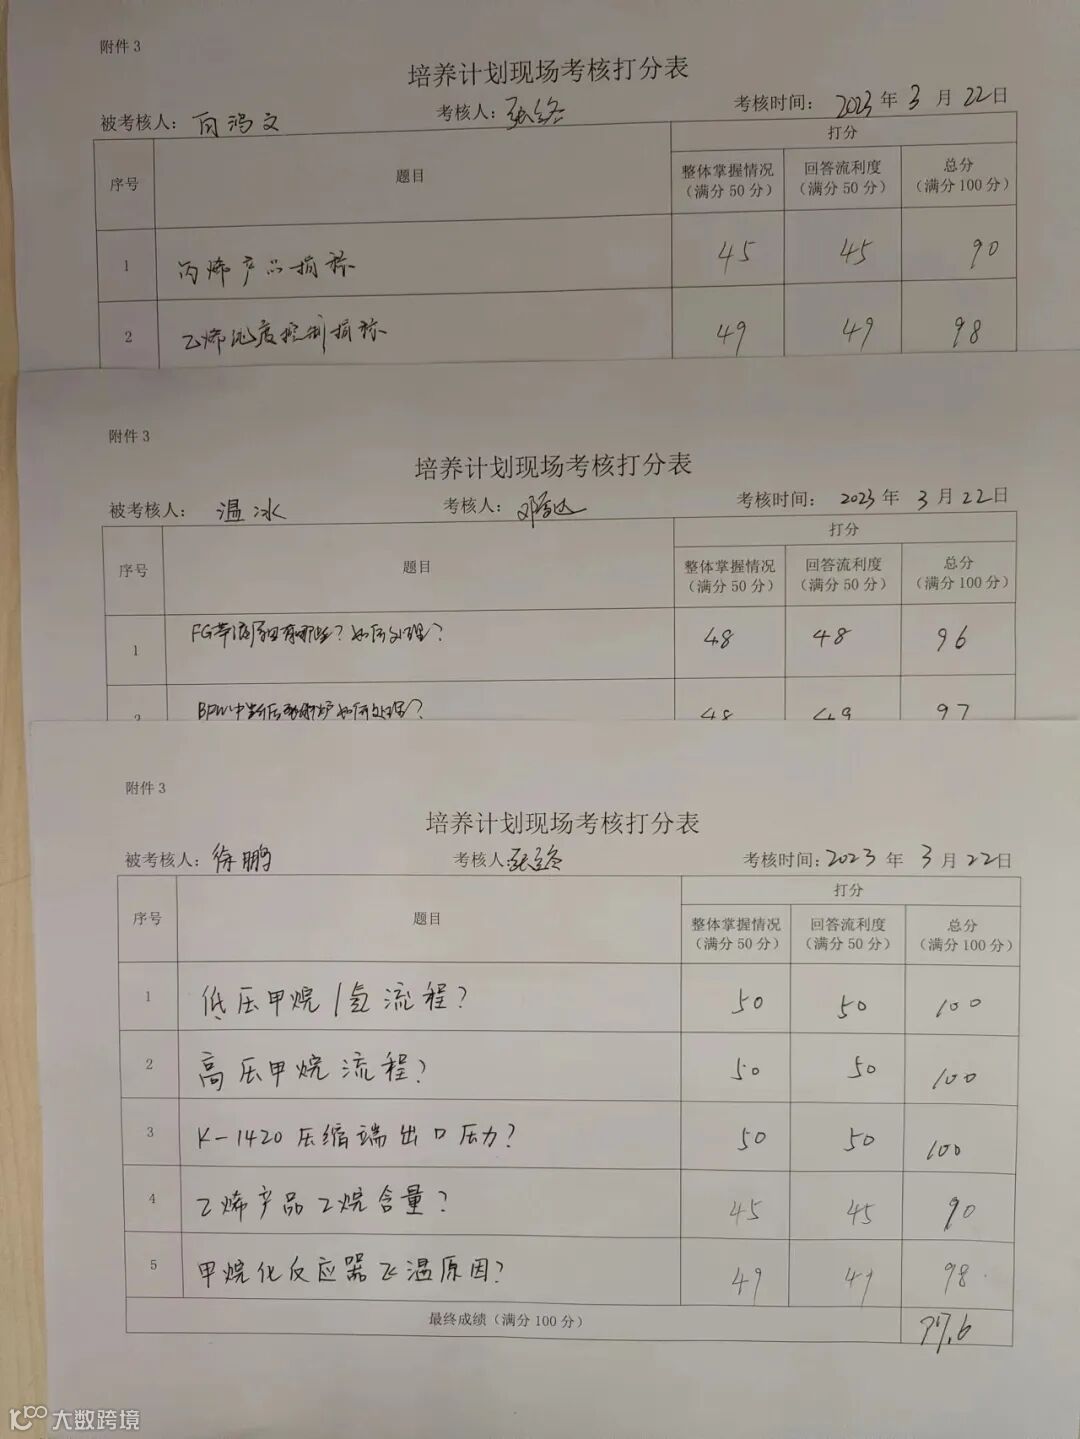 附件 3
培养计划现场考核打分表
被考核人： 向鸿文 考核人： 考核时间： 2023 年 3 月 22 日
序号 题目 打分
整体掌握情况（满分 50 分） 回答流利度（满分 50 分） 总分（满分 100 分）
1 丙烯产品指标 45 45 90
2 乙烯纯度控制指标 49 49 98
附件 3
培养计划现场考核打分表
被考核人： 温冰 考核人： 考核时间： 2023 年 3 月 22 日
序号 题目 打分
整体掌握情况（满分 50 分） 回答流利度（满分 50 分） 总分（满分 100 分）
1 FG带液原因有哪些？如何处理？ 48 48 96
2 BFW中断后 如何处理？ 48 49 97
附件 3
培养计划现场考核打分表
被考核人： 徐鹏 考核人： 考核时间： 2023 年 3 月 22 日
序号 题目 打分
整体掌握情况（满分 50 分） 回答流利度（满分 50 分） 总分（满分 100 分）
1 低压甲烷/氢流程？ 50 50 100
2 高压甲烷流程？ 50 50 100
3 K-1420压缩端出口压力？ 50 50 100
4 乙烯产品乙烷含量？ 45 45 90
5 甲烷化反应器飞温原因？ 49 49 98
最终成绩（满分 100 分） 97.6
大数跨境